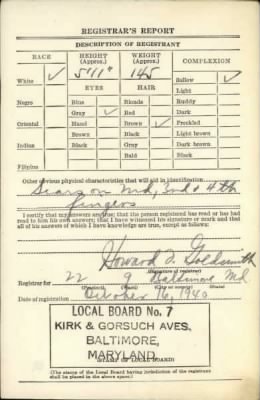 REGISTRAR'S REPORT
DESCRIPTION OF REGISTRANT
RACE HEIGHT (Approx.) WEIGHT (Approx.) COMPLEXION
White ✓ 5'11" 145 Sallow ✓
EYES HAIR Light
Negro Blue Blonde Ruddy
Gray ✓ Red Dark
Oriental Hazel Brown ✓ Freckled
Brown Black Light brown
Indian Black Gray Dark brown
Bald Black
Filipino
Other obvious physical characteristics that will aid in identification
Scars on Mid, 3rd & 4th
fingers
I certify that my answers are true; that the person registered has read or has had
read to him his own answers; that I have witnessed his signature or mark and that
all of his answers of which I have knowledge are true, except as follows:
Howard Goldsmith
(Signature of registrar)
Registrar for 22 9 Baltimore Md.
(Precinct) (Ward) (City or county) (State)
Date of registration October 16, 1940
LOCAL BOARD No. 7
KIRK & GORSUCH AVES,
BALTIMORE,
MARYLAND
(STAMP OF LOCAL BOARD)
(The stamp of the Local Board having jurisdiction of the registrant
shall be placed in the above space.)